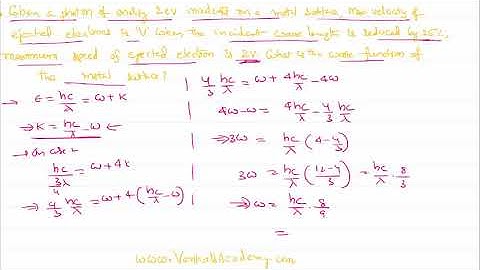 Given a photon of energy 2eV incident on a metal surface, max velocity of
ejected electrons is 'V' when the incident wave length is reduced by 25%,
maximum speed of ejected electron is 2V. what is the work function of
the metal surface?
→ E = hc/λ = ω + K
⇒ K = hc/λ - ω ←
→ In case 2
hc/(3λ/4) = ω + 4K
⇒ 4/3 hc/λ = ω + 4(hc/λ - ω)
4/3 hc/λ = ω + 4hc/λ - 4ω
4ω - ω = 4hc/λ - 4/3 hc/λ
⇒ 3ω = hc/λ (4 - 4/3)
3ω = hc/λ (12-4/3) = hc/λ . 8/3
⇒ ω = hc/λ . 8/9
=
www.VenkatsAcademy.com